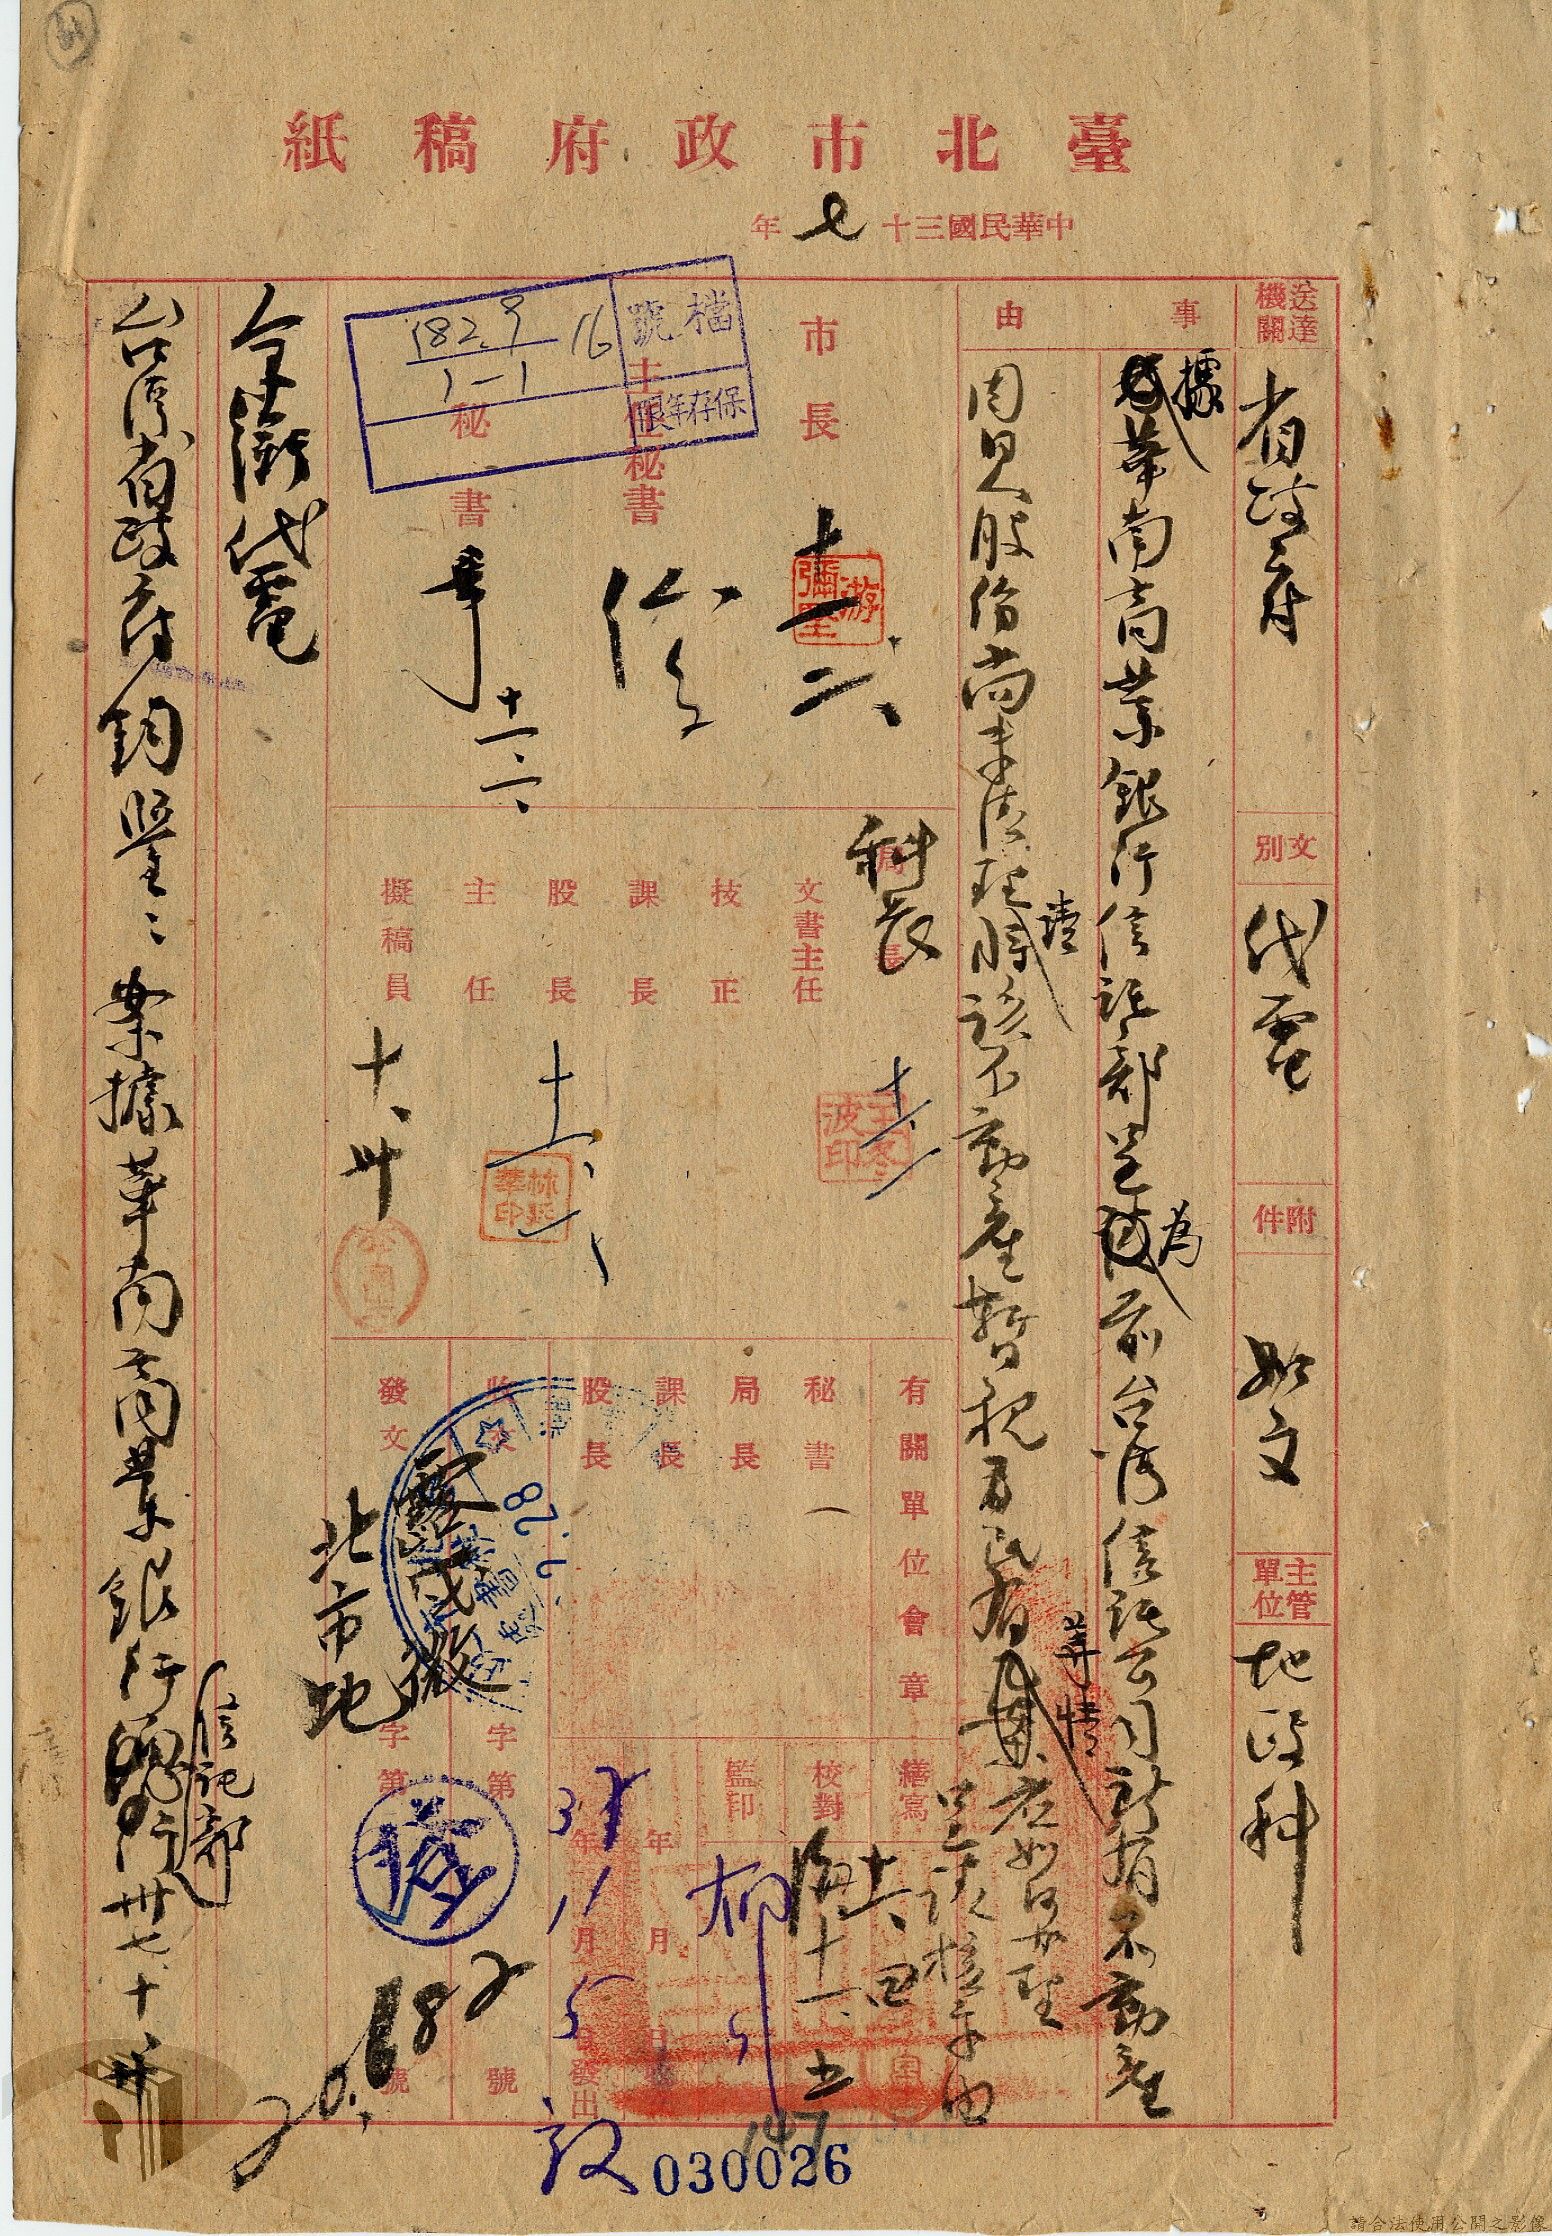 臺北市政府稿紙
中華民國三十七年
送達機關
省政府
文別
代電
附件
如文
主管單位
地政科
事由
據華南商業銀行信託部呈為前台灣信託公司所有不動產
因見股份尚未清理請將該不動產暫視為民有等情應如何辦理
呈請核示由
市長
十一、二、
游彌堅
主任秘書
秘書
十一、二、
檔號
182.9
1-1
16
保存年限
科長
局長
文書主任
技正
課長
股長
主任
擬稿員
十、卅
林
華印
王冬
波印
有關單位會章
秘書
局長
課長
股長
收文
字第
號
發文
北市地
字第
20682
號
繕寫
校對
監印
年
月
日
37
年
11
月
5
日發出
十一、四
十一、五
柳
7.28
發
030026
147
全銜代電
台灣省政府鈞鑒：案據華南商業銀行信託部卅七、十、
請合法使用公開之影像